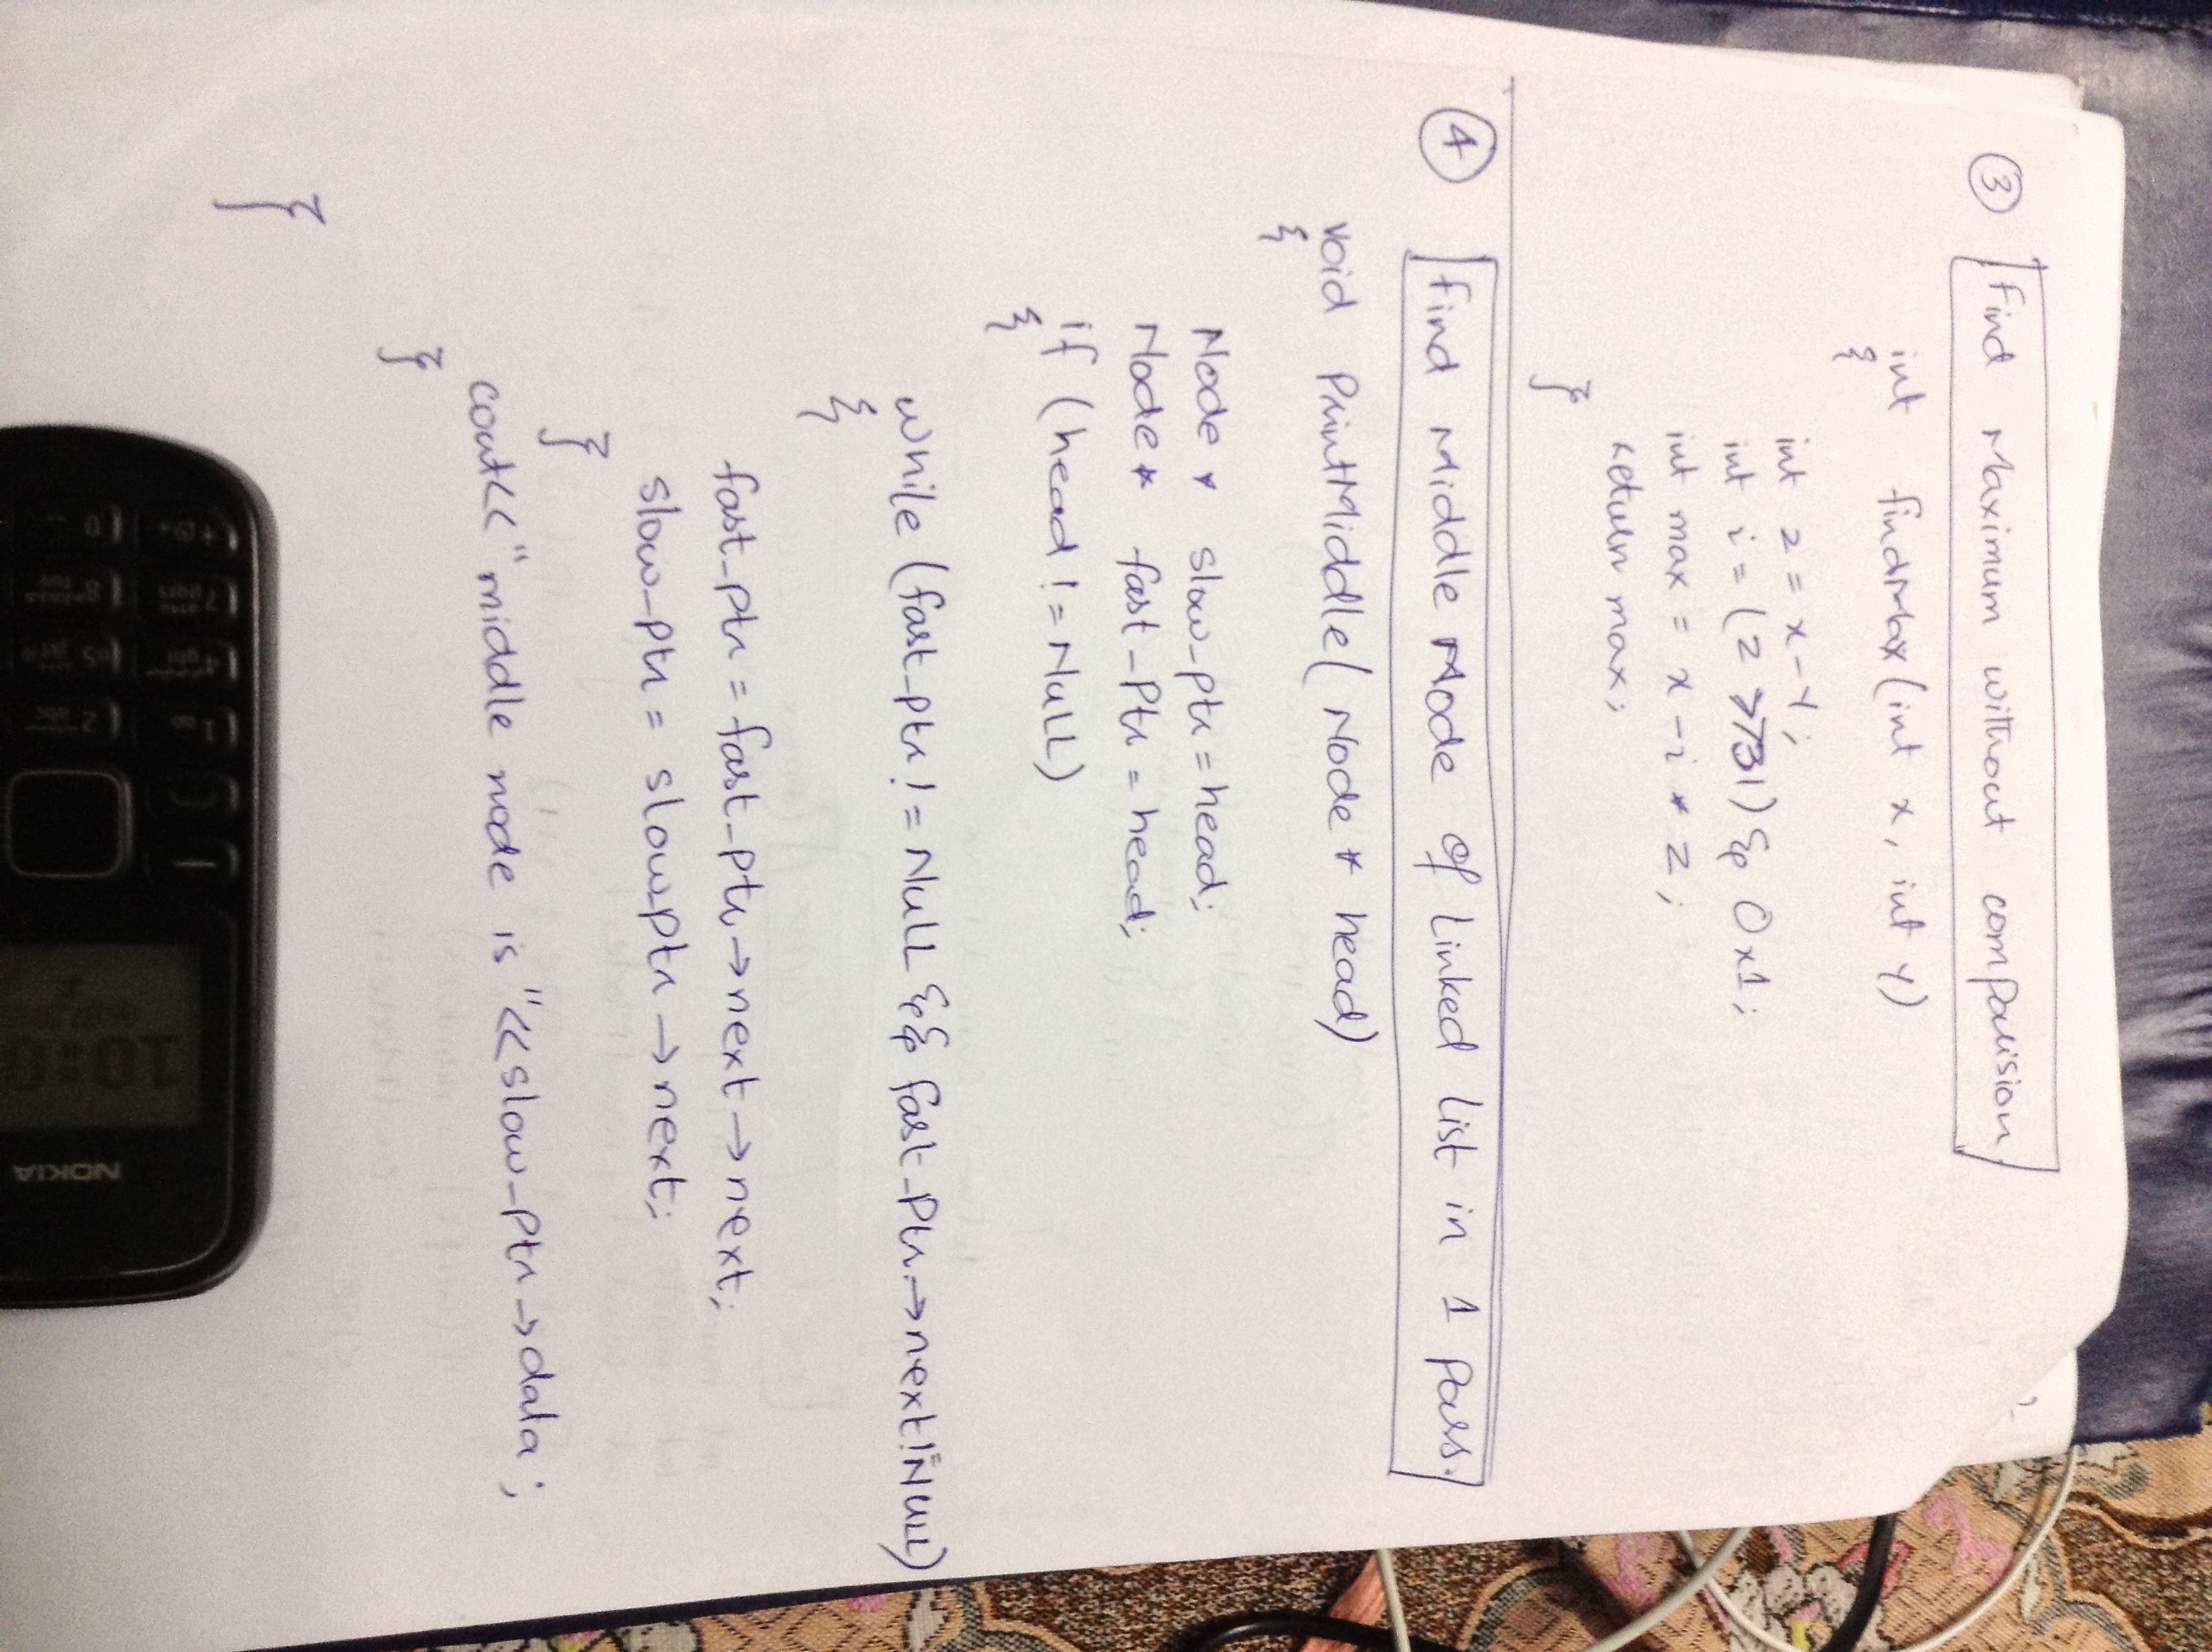 3 Find Maximum without comparision.
int findMax(int x, int y)
{
int z = x-y;
int i = (z >>31) & 0x1;
int max = x-i * z;
return max;
}
4 Find Middle Node of Linked List in 1 pass.
void PrintMiddle( Node * head)
{
Node * slow_ptr = head;
Node * fast_Ptr = head;
if (head != NULL)
{
while (fast_ptr != NULL && fast_Ptr->next!=NULL)
{
fast_ptr = fast_ptr->next->next;
slow_ptr = slowptr->next;
}
cout<<"middle node is "<<slow_ptr->data;
}
}
NOKIA